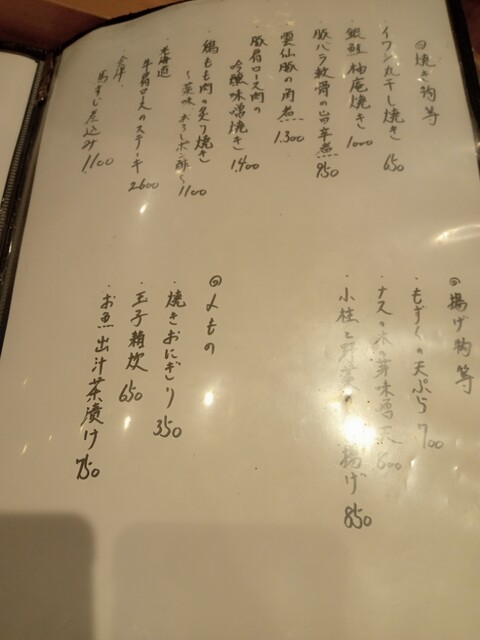 ◎焼き物等
・イワシ丸干し焼き 650
・銀鮭柚庵焼き 1000
・豚バラ軟骨の旨辛煮 850
・雲仙豚の角煮 1300
・豚肩ロース肉の
吟醸味噌焼き 1400
・鶏もも肉の炙り焼き
〜薬味おろしポン酢〜 1100
・北海道
牛肩ロースのステーキ 2600
・会津
馬すじ煮込み 1100
◎揚げ物等
・もずくの天ぷら 700
・ナスの木の芽味噌天 800
・小柱と野菜の 揚げ 850
◎〆もの
・焼きおにぎり 350
・玉子雑炊 650
・お魚出汁茶漬け 750